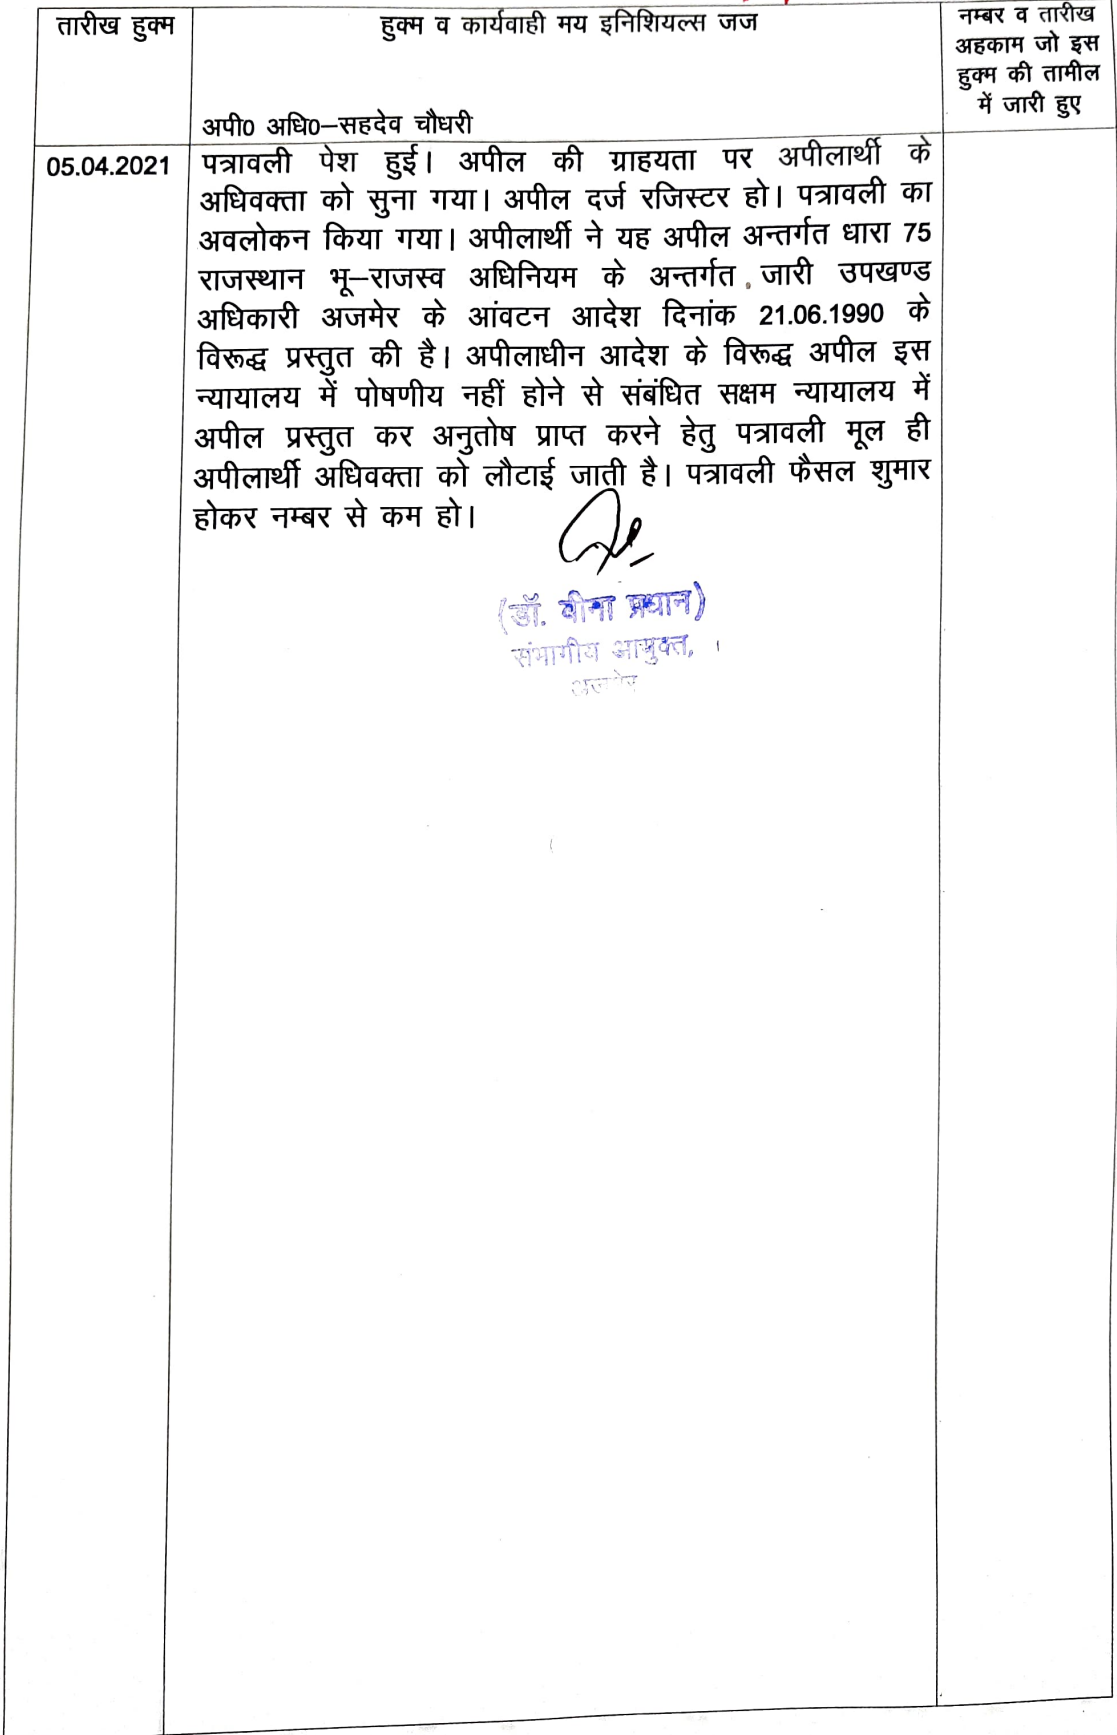 तारीख हुक्म
हुक्म व कार्यवाही मय इनिशियल्स जज
नम्बर व तारीख
अहकाम जो इस
हुक्म की तामील
में जारी हुए
अपी0 अधि0–सहदेव चौधरी
05.04.2021
पत्रावली पेश हुई। अपील की ग्राहयता पर अपीलार्थी के
अधिवक्ता को सुना गया। अपील दर्ज रजिस्टर हो। पत्रावली का
अवलोकन किया गया। अपीलार्थी ने यह अपील अन्तर्गत धारा 75
राजस्थान भू–राजस्व अधिनियम के अन्तर्गत जारी उपखण्ड
अधिकारी अजमेर के आंवटन आदेश दिनांक 21.06.1990 के
विरूद्ध प्रस्तुत की है। अपीलाधीन आदेश के विरूद्ध अपील इस
न्यायालय में पोषणीय नहीं होने से संबंधित सक्षम न्यायालय में
अपील प्रस्तुत कर अनुतोष प्राप्त करने हेतु पत्रावली मूल ही
अपीलार्थी अधिवक्ता को लौटाई जाती है। पत्रावली फैसल शुमार
होकर नम्बर से कम हो।
(डॉ. वीना प्रधान)
संभागीय आयुक्त,
अजमेर